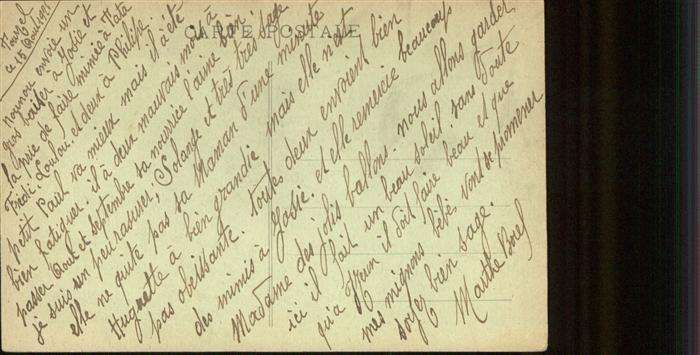 CARTE POSTALE
ce 15 Août
envoie un
gros baiser à Josée et
la prie de faire mimie à Tata
Frédi. Loulou et deux à Philippe
petit Paul va mieux mais il a été
bien fatiguer. il à deux mauvais mois à
passer Aout et septembre sa nourrice l'aime bien
je suis un peu rassurer, Solange et très très sage
elle ne quite pas sa Maman d'une minute
Huguette à bien grandie mais elle n'est
pas obeissante. toutes deux envoient bien
des mimis à Josée et elle remercie beaucoup
Madame des jolis ballons. nous allons garder
ici il fait un beau soleil sans doute
qu'a il doit faire beau et que
mes mignons bébé, vont se promener
soyez bien sage.
Marthe